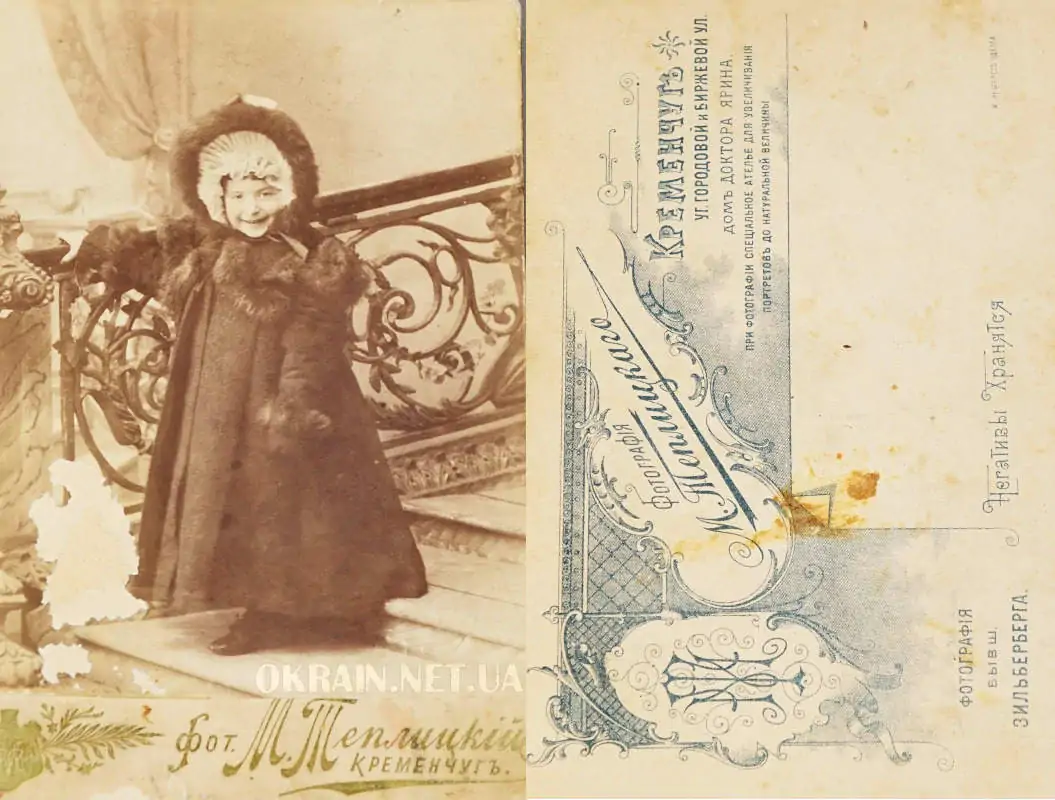 OKRAIN.NET.UA
Фот. М. Теплицкій
Кременчугъ.
Фотографія
М. Теплицкаго
Кременчугъ
УГ. ГОРОДОВОЙ И БИРЖЕВОЙ УЛ.
ДОМЪ ДОКТОРА ЯРИНА.
ПРИ ФОТОГРАФІИ СПЕЦІАЛЬНОЕ АТЕЛЬЕ ДЛЯ УВЕЛИЧИВАНІЯ
ПОРТРЕТОВЪ ДО НАТУРАЛЬНОЙ ВЕЛИЧИНЫ
Негативы Хранятся
ФОТОГРАФІЯ
БЫВШ.
ЗИЛЬБЕРБЕРГА.